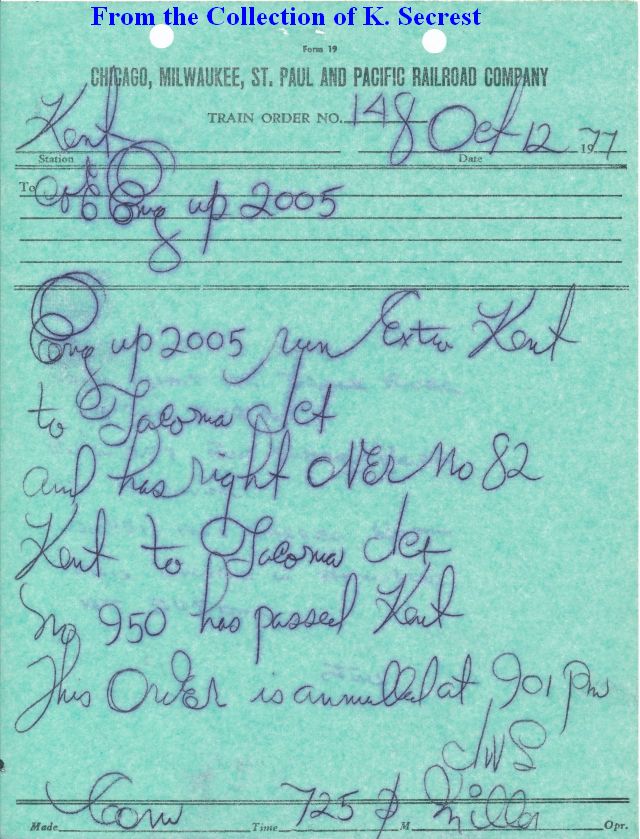 From the Collection of K. Secrest
Form 19
CHICAGO, MILWAUKEE, ST. PAUL AND PACIFIC RAILROAD COMPANY
TRAIN ORDER NO. 148 Oct 12 1977
Kent
Station Date
To C&E Eng up 2005
Eng up 2005 run Extra Kent
to Tacoma Jct
and has right OVEr No 82
Kent to Tacoma Jct
No 950 has passed Kent
This OrdEr is annulled at 901 Pm
JWS
Made Com Time 725 P M Miller Opr.